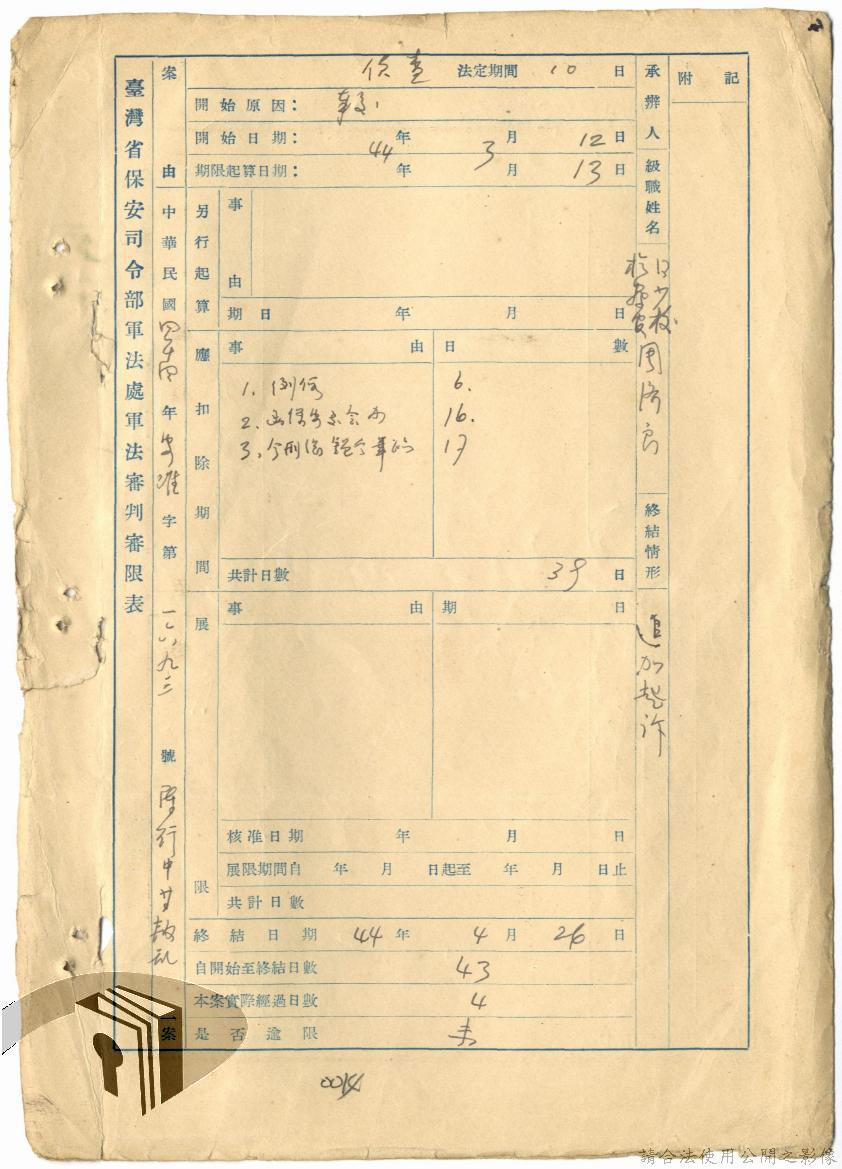 臺灣省保安司令部軍法處軍法審判審限表
案由 中華民國四十四年安准字第一六九三號 行中甘叛亂一案
偵查 法定期間 10 日
開始原因:
開始日期: 44 年 3 月 12 日
期限起算日期: 年 月 13 日
另行起算 事由
期日 年 月 日
應扣除期間 事由 日數
1. 例假 6.
2. 16.
3. 17
共計日數 39 日
展限 事由 期日
核准日期 年 月 日
展限期間自 年 月 日起至 年 月 日止
共計日數
終結日期 44 年 4 月 26 日
自開始至終結日數 43
本案實際經過日數 4
是否逾限 未
承辦人級職姓名 少校
檢察官周濟良
終結情形 追加起訴
附記
0014
請合法使用公開之影像